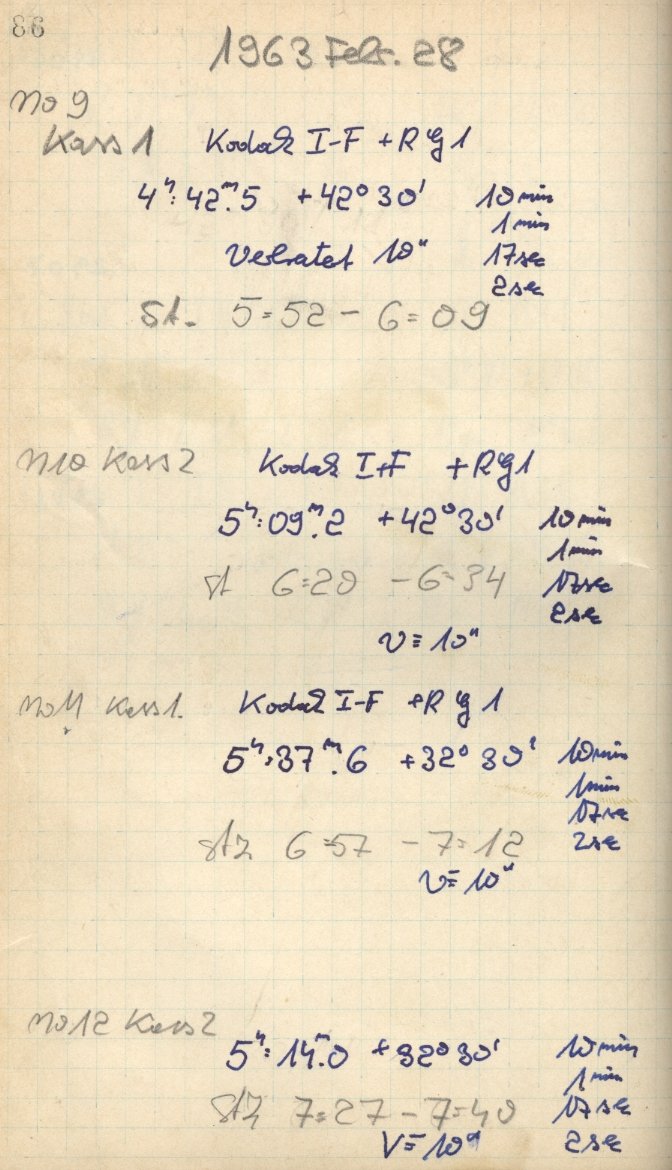 86
1963 Febr. 28
No 9
Kass 1 Kodak I-F + RG1
4ʰ: 42ᵐ.5 +42° 30' 10 min
1 min
17 sec
2 sec
10"
St. 5=52 - 6=09
No10 Kass 2 Kodak I-F + RG1
5ʰ: 09ᵐ.2 +42° 30' 10 min
1 min
st 6=20 - 6=34 17sec
2 sec
v = 10"
No11 Kass 1. Kodak I-F +RG1
5ʰ:37ᵐ.6 +32° 30' 10 min
1 min
17sec
stz 6=57 - 7=12 2sec
v= 10"
No12 Kass 2
5ʰ: 14ᵐ.0 +32° 30' 10 min
1 min
stz 7=27 - 7=40 17 sec
V= 10" 2 sec